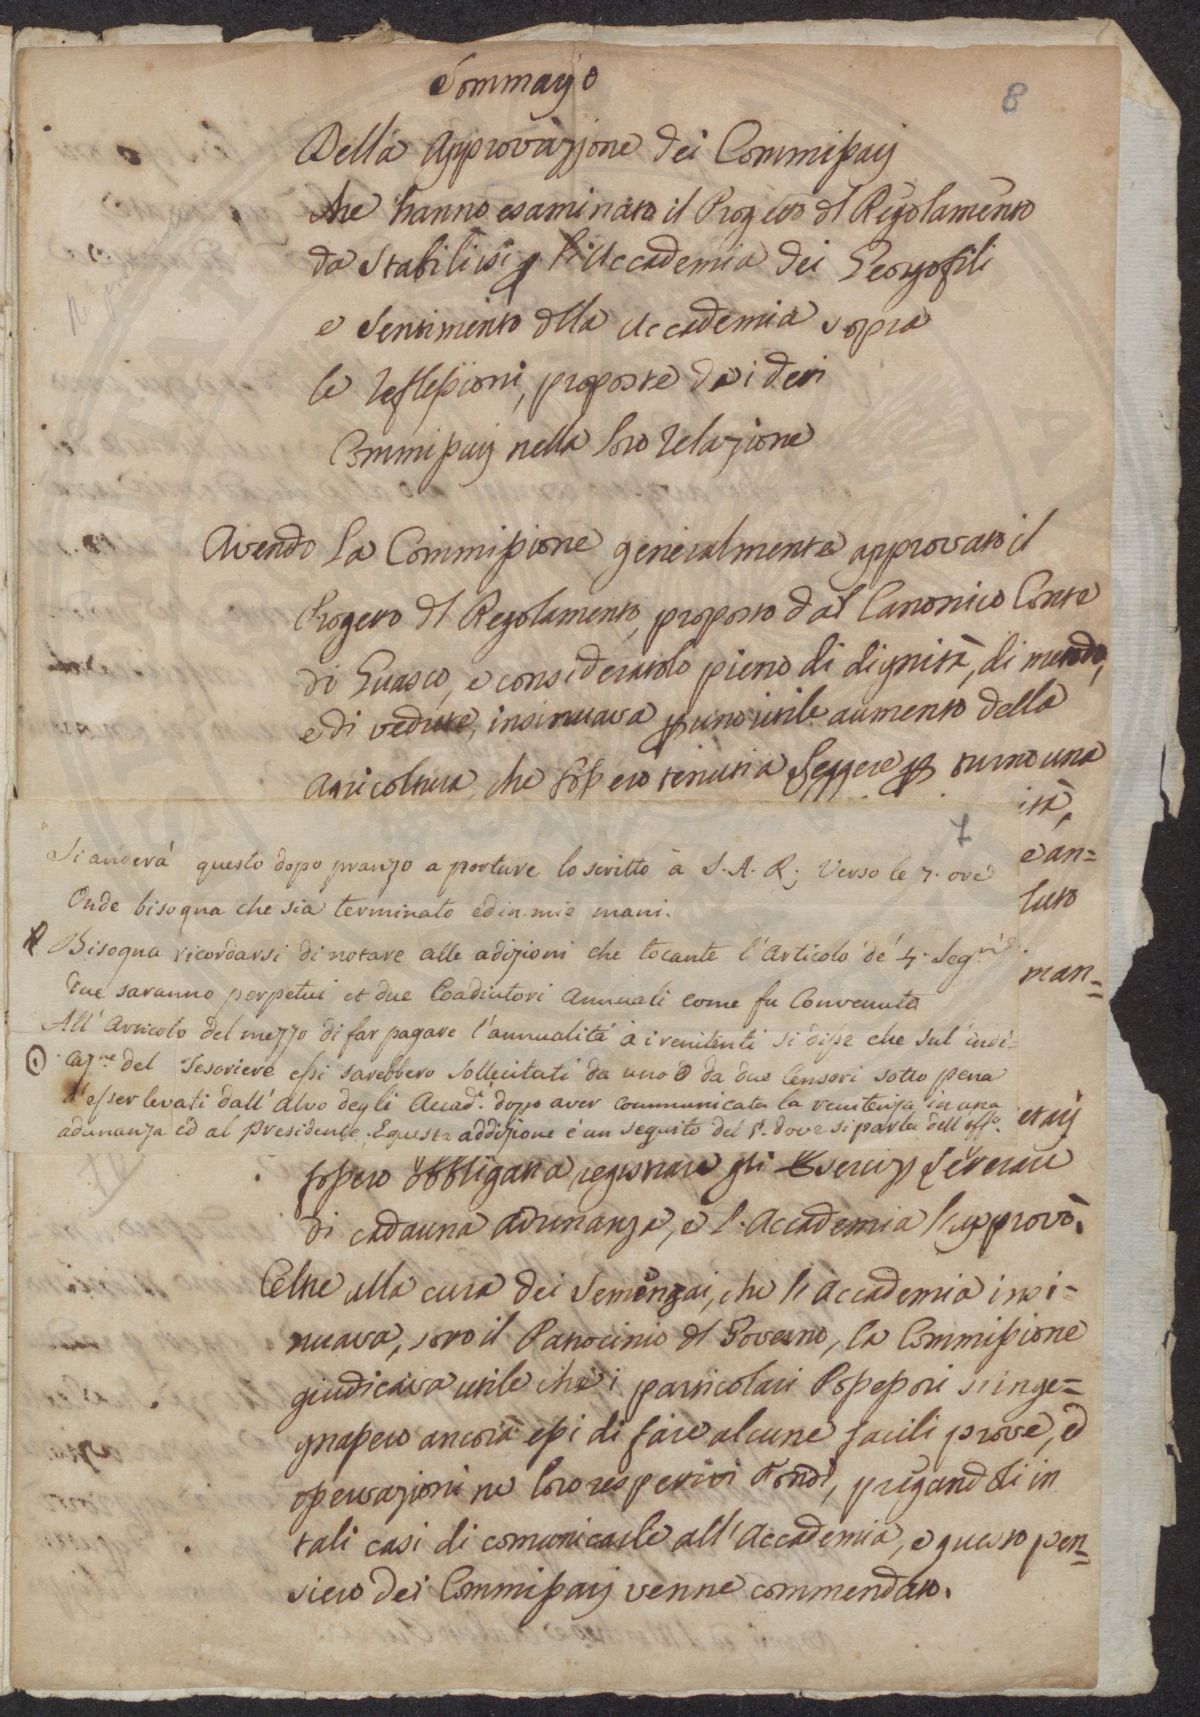 Sommario
8
Della Approvazione dei Commissarj
che hanno esaminato il Progetto dl Regolamento
da Stabilirsi p l'Accademia dei Georgofili
e Sentimento dlla Accademia sopra
le reflessioni, proposte dai detti
Commissarj nella loro relazione
Avendo la Commissione generalmente approvato il
Progetto dl Regolamento, proposto dal Canonico Conte
di Guasco, e consideratolo pieno di dignità, di metodo,
e di vedute, insinuava p uno utile aumento della
Agricoltura, che fossero tenuti a leggere p turno una
ità,
7
Si anderà questo dopo pranzo a portare lo scritto à S. A. R; Verso le 7. ore
e an=
Onde bisogna che sia terminato ed in mie mani.
luto
Bisogna ricordarsi di notare alle adizioni che tocante l'Articolo de' 4. Seg.rj
man=
Due saranno perpetui et due Coadiutori Annuali come fu Convenuto
All' Articolo del mezzo di far pagare l'annualità à i renitenti si disse che sul' indi=
caz.ne del Tesoriere essi sarebbero sollecitati da uno o da due Censori sotto pena
d'esser levati dall' Alvo degli Accad. doppo aver communicata la renitenza in una
adunanza ed al presidente. E questa addizione è un seguito del §. dove si parla dell' uff.o
etarj
fossero obbligati a registrare gli Esercizj Letterarj
di cadauna adunanza, e l'Accademia l'approvò.
Oltre alla cura dei Semenzai, che l'Accademia insi=
nuava, sotto il Patrocinio dl Governo, la Commissione
giudicava utile che i particolari Possessori s'inge=
gnassero ancora essi di fare alcune facili prove, ed
operazioni ne loro respettivi Fondi, pregandoli in
tali casi di comunicarle all'Accademia, e questo pen=
siero dei Commissarj venne commendato.